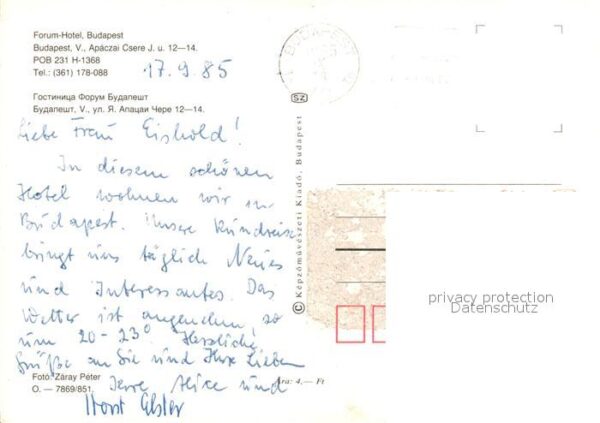 Forum-Hotel, Budapest
Budapest, V., Apáczai Csere J. u. 12—14.
POB 231 H-1368
Tel.: (361) 178-088
17.9.85
Гостиница Форум Будапешт
Будапешт, V., ул. Я. Апацаи Чере 12—14.
Liebe Frau Eishold!
In diesem schönen
Hotel wohnen wir in
Budapest. Unsere Rundreise
bringt uns täglich Neues
und Interessantes. Das
Wetter ist angenehm, so
um 20-23° Herzliche
Grüße an Sie und Ihre Lieben
Ihre Alice und
Horst Elster
Fotó: Záray Péter
O. — 7869/851.
Ára: 4,— Ft
SZ
© Képzőművészeti Kiadó, Budapest
BUDAPEST
privacy protection
Datenschutz